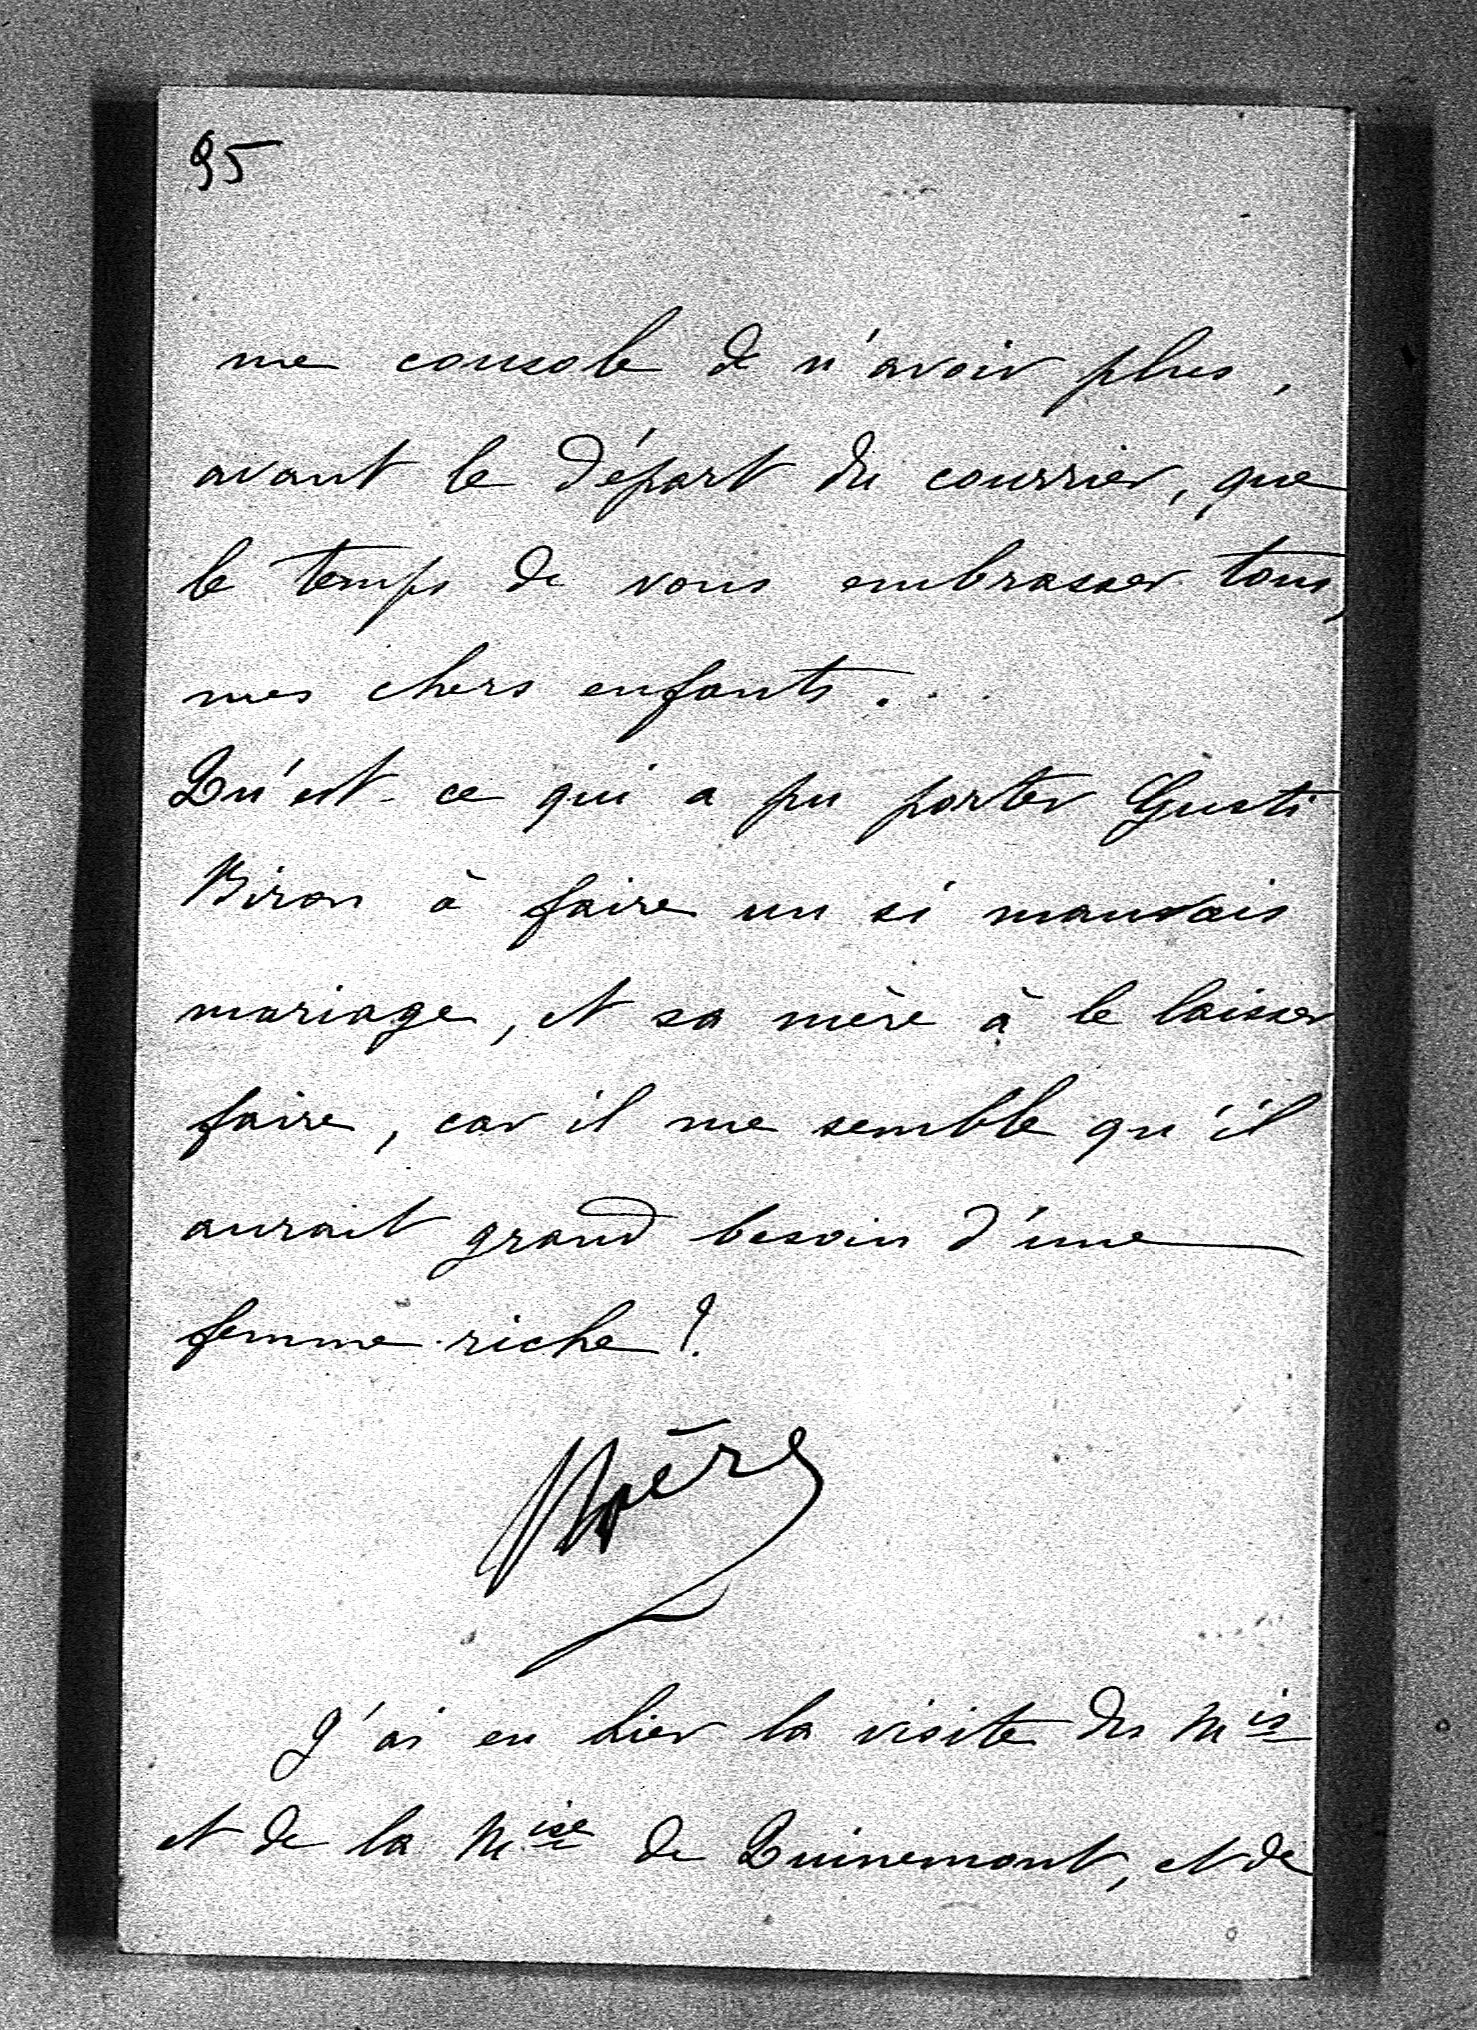 95
me console de n'avoir plus,
avant le départ du courrier, que
le temps de vous embrasser tous,
mes chers enfants...
Qu'est-ce qui a pu porter Gusti
Biron à faire un si mauvais
mariage, et sa mère à le laisser
faire, car il me semble qu'il
aurait grand besoin d'une
femme riche?
J'ai eu hier la visite du Mis
et de la Mise de Quinemont, et de